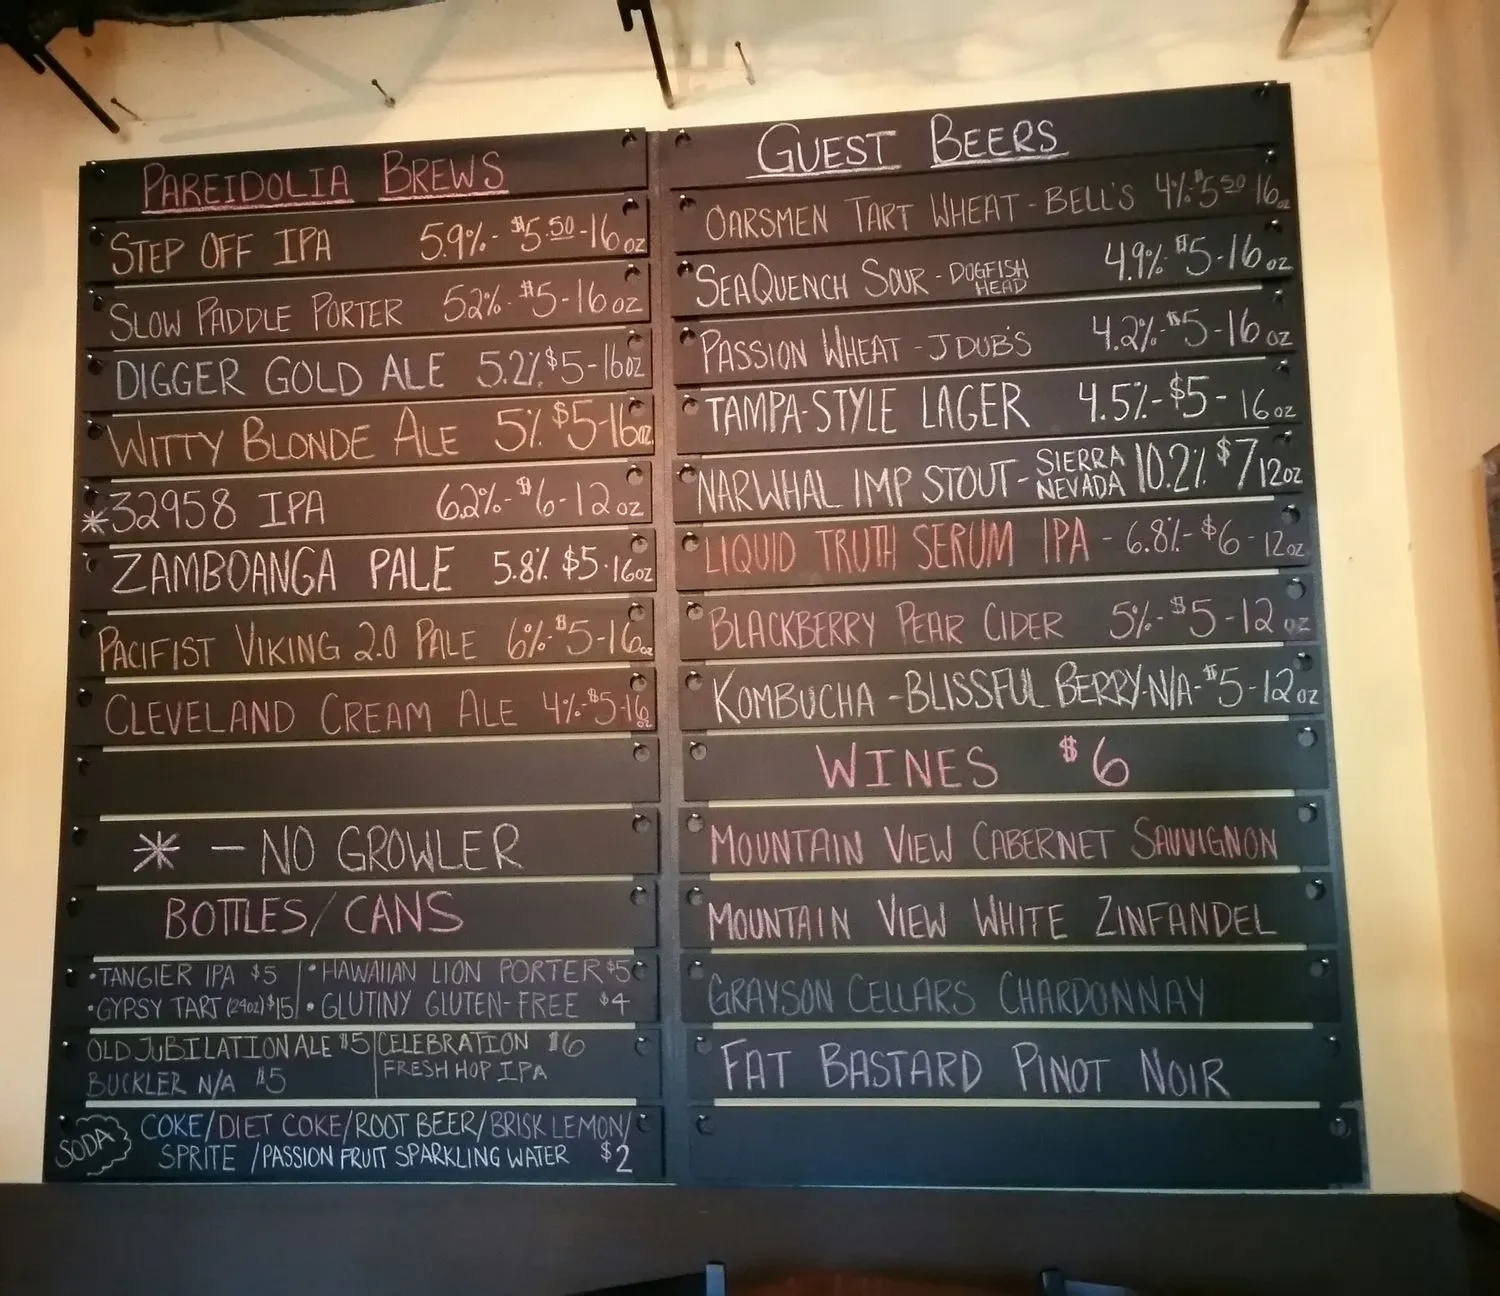 PAREIDOLIA BREWS
STEP OFF IPA 5.9%- $5.50-16oz
SLOW PADDLE PORTER 52%- $5-16oz
DIGGER GOLD ALE 5.2% $5-16oz
WITTY BLONDE ALE 5% $5-16oz
*32958 IPA 6.2%-$6-12oz
ZAMBOANGA PALE 5.8% $5-16oz
PACIFIST VIKING 2.0 PALE 6%-$5-16oz
CLEVELAND CREAM ALE 4%-$5-16oz
* - NO GROWLER
BOTTLES/CANS
•TANGIER IPA $5 | •HAWAIIAN LION PORTER $5
•GYPSY TART (24oz) $15 | •GLUTINY GLUTEN-FREE $4
OLD JUBILATION ALE $5 | CELEBRATION $6
BUCKLER N/A $5 | FRESH HOP IPA
SODA
COKE/DIET COKE/ROOT BEER/BRISK LEMON/
SPRITE /PASSION FRUIT SPARKLING WATER $2
GUEST BEERS
OARSMEN TART WHEAT - BELL'S 4%-$5.50 16oz
SEAQUENCH SOUR - DOGFISH HEAD 4.9% $5-16oz
PASSION WHEAT - JDUB'S 4.2%-$5-16oz
TAMPA-STYLE LAGER 4.5%-$5-16oz
NARWHAL IMP STOUT - SIERRA NEVADA 10.2% $7 12oz
LIQUID TRUTH SERUM IPA - 6.8%-$6-12oz
BLACKBERRY PEAR CIDER 5%-$5-12oz
KOMBUCHA -BLISSFUL BERRY-N/A-$5-12oz
WINES $6
MOUNTAIN VIEW CABERNET SAUVIGNON
MOUNTAIN VIEW WHITE ZINFANDEL
GRAYSON CELLARS CHARDONNAY
FAT BASTARD PINOT NOIR